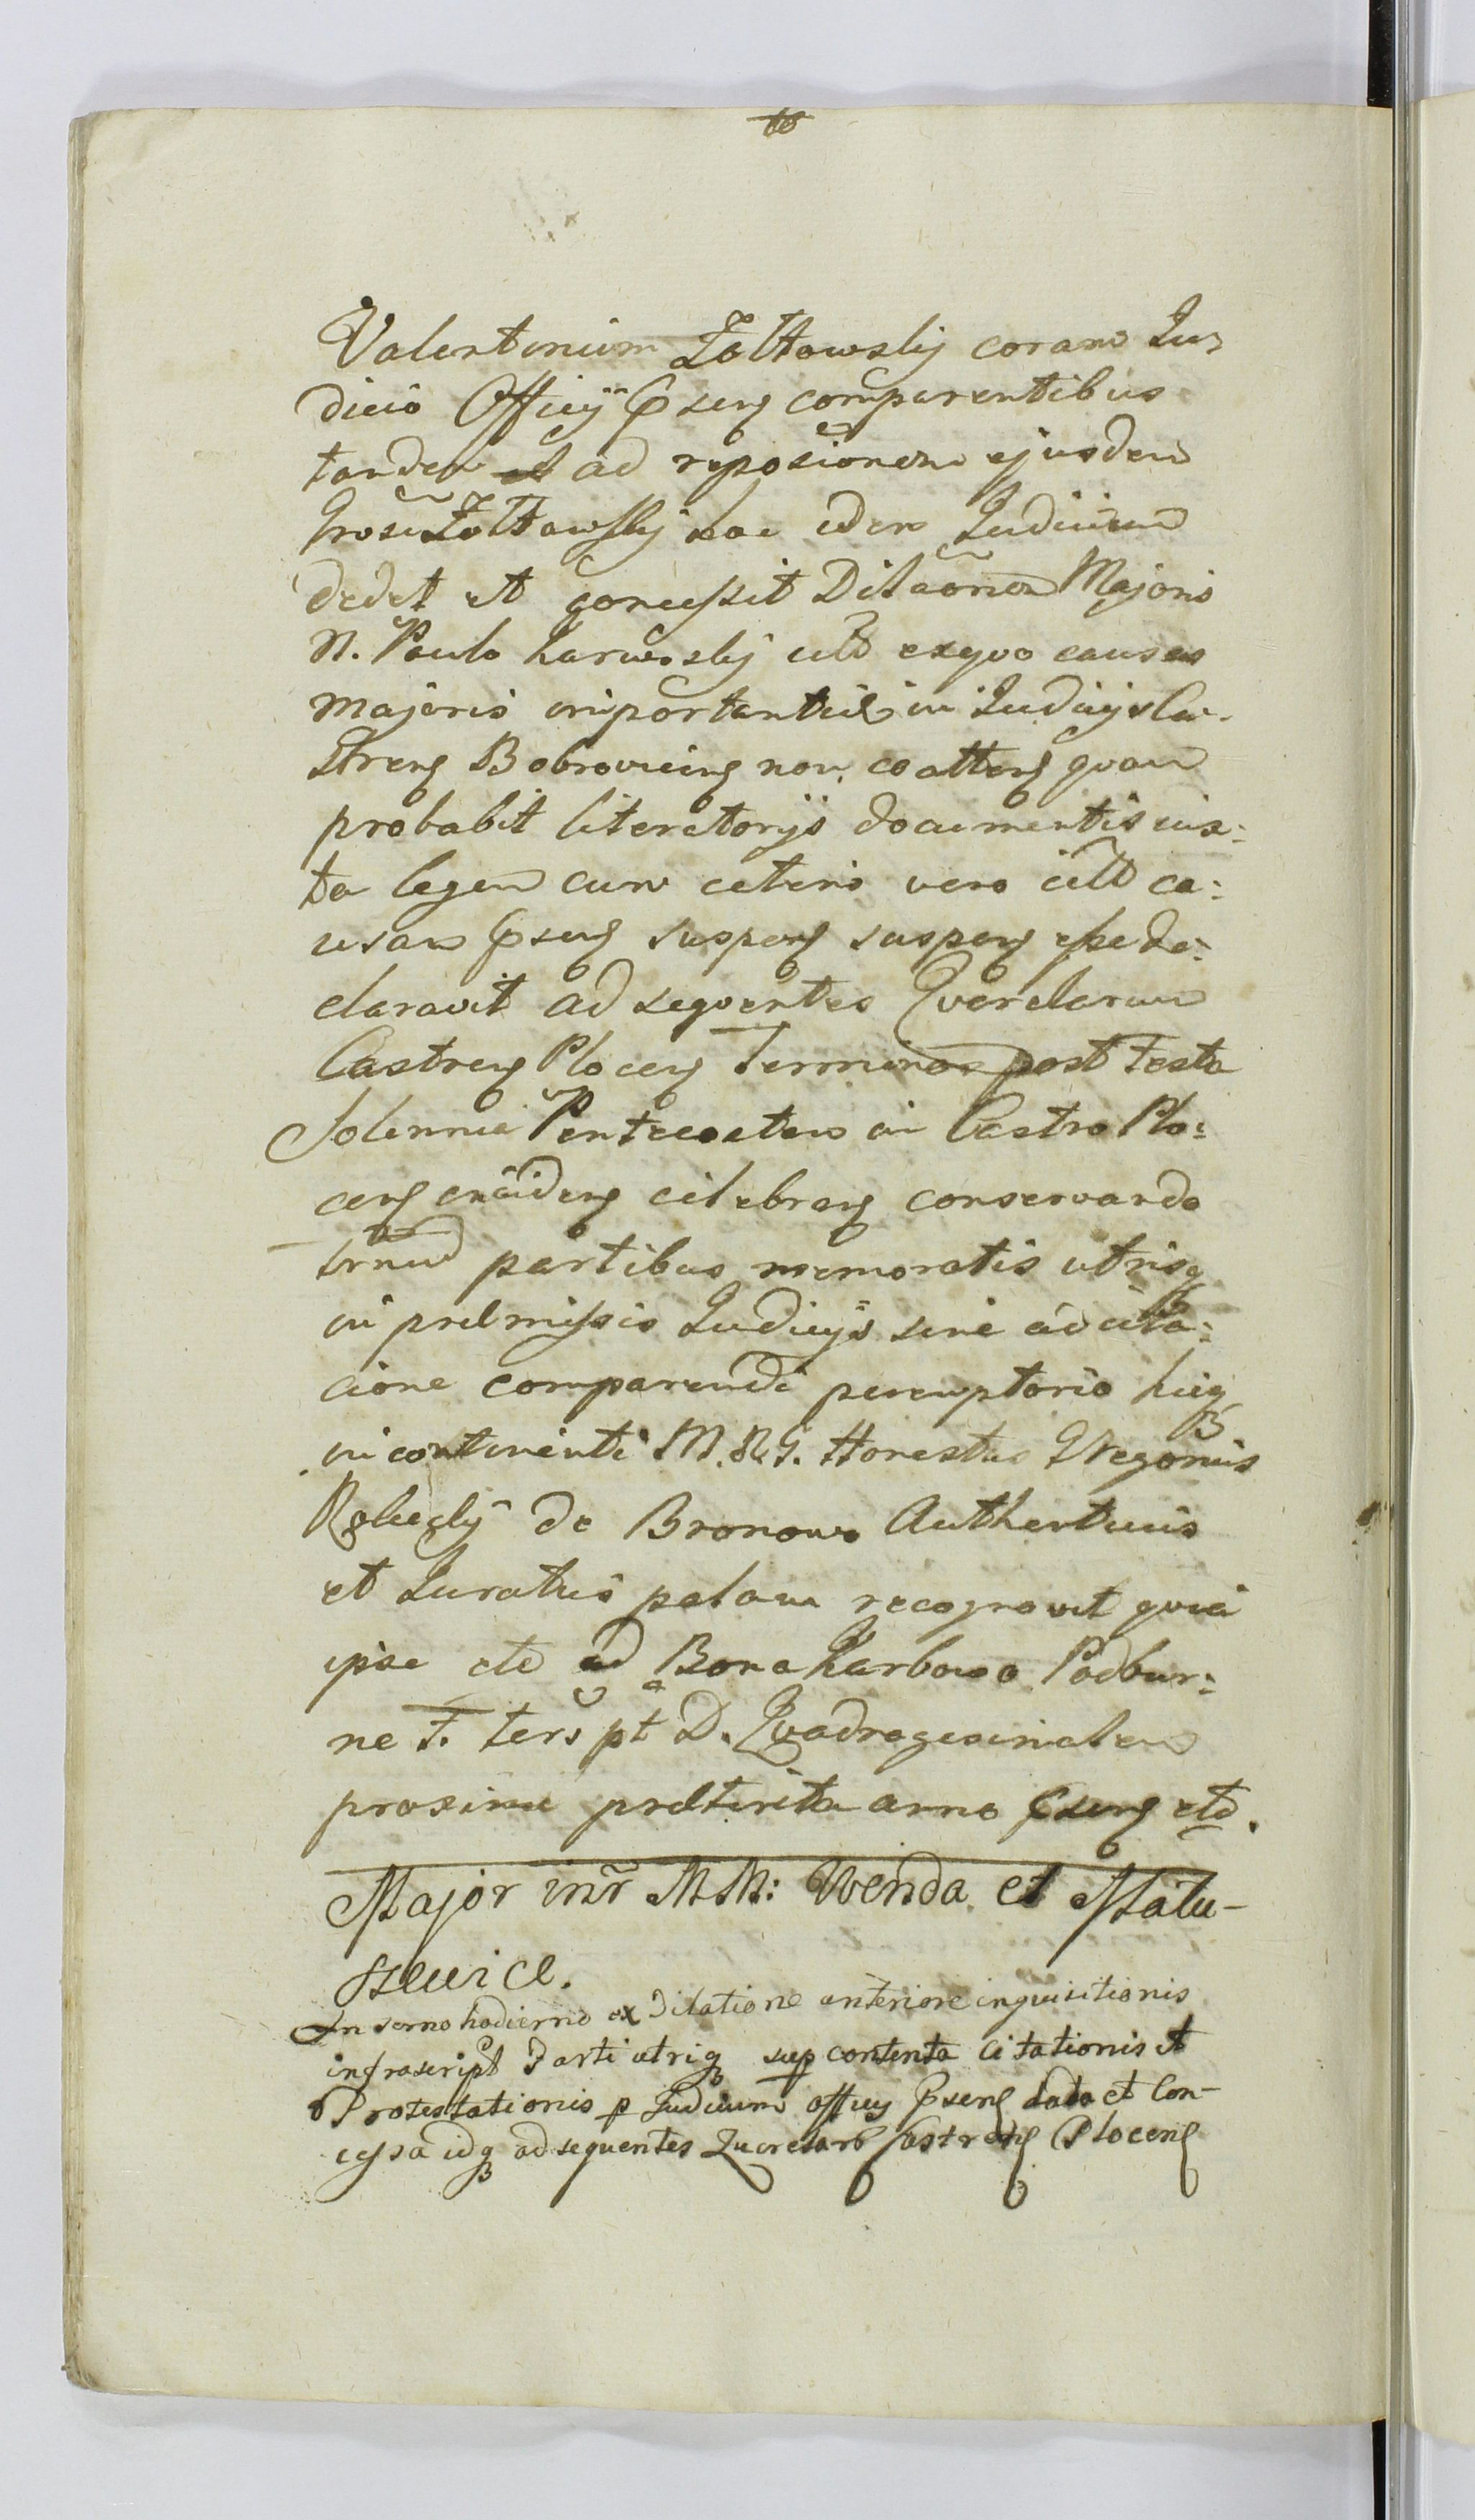 Valentinum Żołtowskij coram Iu-
dicio Officÿ pseng comparentibus
tandem ad reposicionem ejusdem
Grosi Żołtowskij hac idem Iudicium
dedit et concessit Dilaōnem Majoris
N. Paulo Karwoskij exquo causas
majoris importantiæ in Iudicijs Ca-
streng Bobrovicing non coatteng quam
probabit literatorijs documentis iux:
ta legem cum ceteris vero ca:
usam pseng suspeng suspeng esse de:
claravit ad sequentes Qverelarum
Castreng Ploceng Terminos post Festa
Solennia Pentecostem in Castro Plo:
ceng celebrang conservando
trnum partibus memoratis utrisq
in præmissis Iudicijs sine adcita:
cione comparendi peremptorio huicq
in continenti M. R. G. Honestus Gregorius
de Bronowo Authenticus
et Iuratus palam recognovit quia
ipse etc ad Bona Karbowo Podbur:
ne F. ter pt D. Qvadragesimalem
proxime præterita anno pseng etc.
Major inr̃ MM: Wenda et Matu-
szewice.
In termo hodierno ex Dilatione anteriore inquisitionis
infrascript Parti utriq sup contenta Citationis et
Protestationis p Iudicium officij pseng data et Con-
cessa idq ad sequentes Querelarū Castreng Ploceng